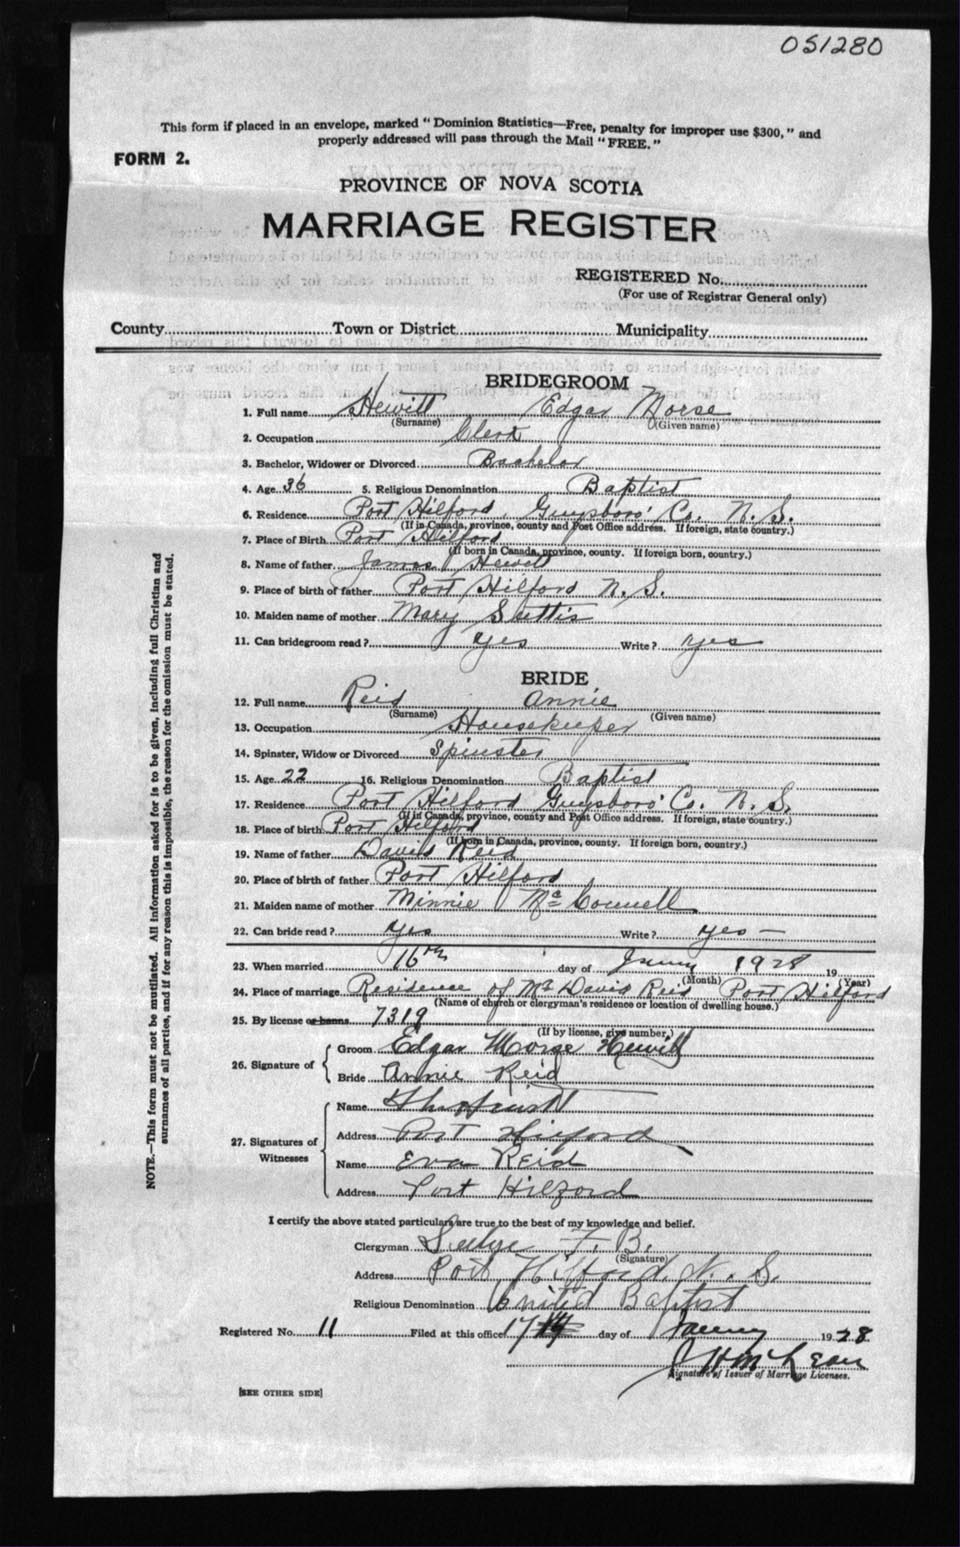 051280
This form if placed in an envelope, marked "Dominion Statistics—Free, penalty for improper use $300," and
properly addressed will pass through the Mail "FREE."
FORM 2.
PROVINCE OF NOVA SCOTIA
MARRIAGE REGISTER
REGISTERED No.
(For use of Registrar General only)
County Town or District Municipality
BRIDEGROOM
1. Full name Hewitt Edgar Morse
(Surname) (Given name)
2. Occupation Clerk
3. Bachelor, Widower or Divorced Bachelor
4. Age 36 5. Religious Denomination Baptist
6. Residence Port Hilford, Guysboro' Co. N.S.
(If in Canada, province, county and Post Office address. If foreign, state country.)
7. Place of Birth Port Hilford
(If born in Canada, province, county. If foreign born, country.)
8. Name of father James Hewitt
9. Place of birth of father Port Hilford N.S.
10. Maiden name of mother Mary
11. Can bridegroom read? Yes Write? Yes
BRIDE
12. Full name Reid Annie
(Surname) (Given name)
13. Occupation Housekeeper
14. Spinster, Widow or Divorced Spinster
15. Age 22 16. Religious Denomination Baptist
17. Residence Port Hilford Guysboro' Co. N.S.
(If in Canada, province, county and Post Office address. If foreign, state country.)
18. Place of birth Port Hilford
(If born in Canada, province, county. If foreign born, country.)
19. Name of father David Reid
20. Place of birth of father Port Hilford
21. Maiden name of mother Minnie McConnell
22. Can bride read? Yes Write? Yes —
23. When married 16th day of 1928 19
(Month) (Year)
24. Place of marriage Residence of Mr David Reid Port Hilford
(Name of church or clergyman's residence or location of dwelling house.)
25. By license or banns 7319
(If by license, give number.)
26. Signature of
Groom Edgar Morse Hewitt
Bride Annie Reid
27. Signatures of Witnesses
Name
Address Port Hilford
Name Eva Reid
Address Port Hilford
I certify the above stated particulars are true to the best of my knowledge and belief.
Clergyman F. B.
(Signature)
Address Port Hilford, N. S.
Religious Denomination United Baptist
Registered No. 11 Filed at this office 17 day of 1928
J H McLean
Signature of Issuer of Marriage Licenses.
[SEE OTHER SIDE]
NOTE.—This form must not be mutilated. All information asked for is to be given, including full Christian and
surnames of all parties, and if for any reason this is impossible, the reason for the omission must be stated.